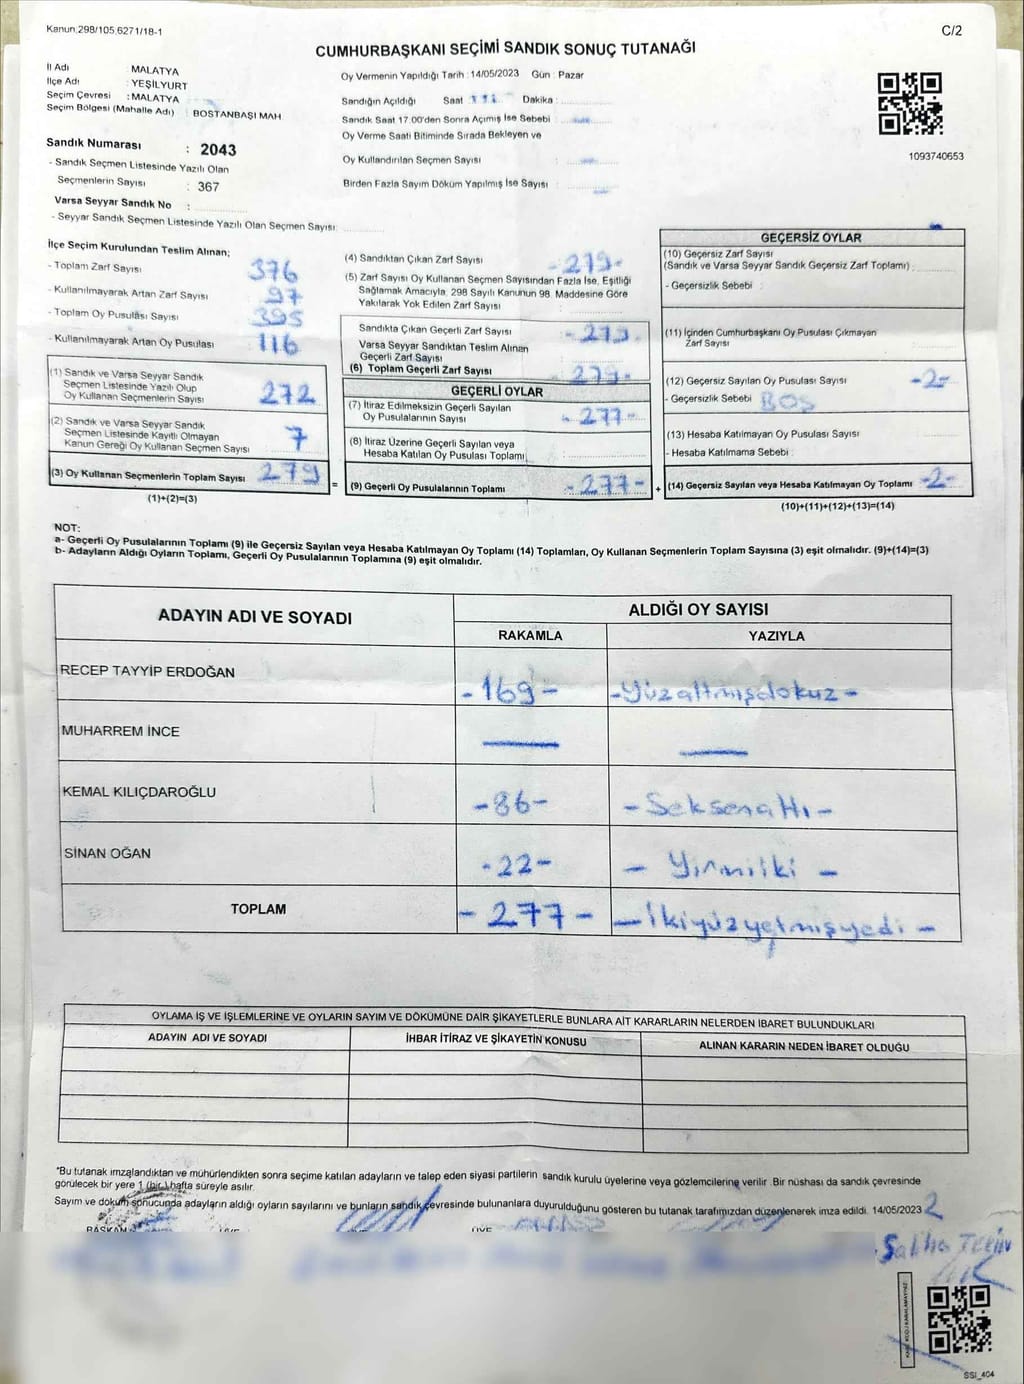 Kanun.298/105,6271/18-1
C/2
CUMHURBAŞKANI SEÇİMİ SANDIK SONUÇ TUTANAĞI
İl Adı MALATYA
İlçe Adı : YEŞİLYURT
Seçim Çevresi : MALATYA
Seçim Bölgesi (Mahalle Adı) : BOSTANBAŞI MAH
Sandık Numarası : 2043
- Sandık Seçmen Listesinde Yazılı Olan
Seçmenlerin Sayısı : 367
Varsa Seyyar Sandık No :
- Seyyar Sandık Seçmen Listesinde Yazılı Olan Seçmen Sayısı:
Oy Vermenin Yapıldığı Tarih : 14/05/2023 Gün : Pazar
Sandığın Açıldığı Saat Dakika :
Sandık Saat 17.00'den Sonra Açımış İse Sebebi :
Oy Verme Saati Bitiminde Sırada Bekleyen ve
Oy Kullandırılan Seçmen Sayısı :
Birden Fazla Sayım Döküm Yapılmış İse Sayısı :
1093740653
İlçe Seçim Kurulundan Teslim Alınan;
- Toplam Zarf Sayısı : 376
- Kullanılmayarak Artan Zarf Sayısı : 97
- Toplam Oy Pusulası Sayısı : 395
- Kullanılmayarak Artan Oy Pusulası : 116
(1) Sandık ve Varsa Seyyar Sandık
Seçmen Listesinde Yazılı Olup
Oy Kullanan Seçmenlerin Sayısı : 272
(2) Sandık ve Varsa Seyyar Sandık
Seçmen Listesinde Kayıtlı Olmayan
Kanun Gereği Oy Kullanan Seçmen Sayısı : 7
(3) Oy Kullanan Seçmenlerin Toplam Sayısı : 279
(1)+(2)=(3)
(4) Sandıktan Çıkan Zarf Sayısı : -279-
(5) Zarf Sayısı Oy Kullanan Seçmen Sayısından Fazla İse, Eşitliği
Sağlamak Amacıyla, 298 Sayılı Kanunun 98. Maddesine Göre
Yakılarak Yok Edilen Zarf Sayısı :
Sandıkta Çıkan Geçerli Zarf Sayısı : -279-
Varsa Seyyar Sandıktan Teslim Alınan
Geçerli Zarf Sayısı :
(6) Toplam Geçerli Zarf Sayısı
GEÇERLİ OYLAR
(7) İtiraz Edilmeksizin Geçerli Sayılan
Oy Pusulalarının Sayısı : -277-
(8) İtiraz Üzerine Geçerli Sayılan veya
Hesaba Katılan Oy Pusulası Toplamı
=
(9) Geçerli Oy Pusulalarının Toplamı : -277-
+
GEÇERSİZ OYLAR
(10) Geçersiz Zarf Sayısı
(Sandık ve Varsa Seyyar Sandık Geçersiz Zarf Toplamı) :
- Geçersizlik Sebebi :
(11) İçinden Cumhurbaşkanı Oy Pusulası Çıkmayan
Zarf Sayısı :
(12) Geçersiz Sayılan Oy Pusulası Sayısı : -2-
- Geçersizlik Sebebi : BOŞ
(13) Hesaba Katılmayan Oy Pusulası Sayısı :
- Hesaba Katılmama Sebebi :
(14) Geçersiz Sayılan veya Hesaba Katılmayan Oy Toplamı : -2-
(10)+(11)+(12)+(13)=(14)
NOT:
a- Geçerli Oy Pusulalarının Toplamı (9) ile Geçersiz Sayılan veya Hesaba Katılmayan Oy Toplamı (14) Toplamları, Oy Kullanan Seçmenlerin Toplam Sayısına (3) eşit olmalıdır. (9)+(14)=(3)
b- Adayların Aldığı Oyların Toplamı, Geçerli Oy Pusulalarının Toplamına (9) eşit olmalıdır.
ADAYIN ADI VE SOYADI
ALDIĞI OY SAYISI
RAKAMLA YAZIYLA
RECEP TAYYİP ERDOĞAN -169- -Yüzaltmışdokuz-
MUHARREM İNCE
KEMAL KILIÇDAROĞLU -86- -Seksenaltı-
SİNAN OĞAN -22- -Yirmiiki-
TOPLAM -277- -İkiyüzyetmişyedi-
OYLAMA İŞ VE İŞLEMLERİNE VE OYLARIN SAYIM VE DÖKÜMÜNE DAİR ŞİKAYETLERLE BUNLARA AİT KARARLARIN NELERDEN İBARET BULUNDUKLARI
ADAYIN ADI VE SOYADI İHBAR İTİRAZ VE ŞİKAYETİN KONUSU ALINAN KARARIN NEDEN İBARET OLDUĞU
*Bu tutanak imzalandıktan ve mühürlendikten sonra seçime katılan adayların ve talep eden siyasi partilerin sandık kurulu üyelerine veya gözlemcilerine verilir. Bir nüshası da sandık çevresinde
görülecek bir yere 1 (bir) hafta süreyle asılır.
Sayım ve döküm sonucunda adayların aldığı oyların sayılarını ve bunların sandık çevresinde bulunanlara duyurulduğunu gösteren bu tutanak tarafımızdan düzenlenerek imza edildi. 14/05/2023
BAŞKAN ÜYE ÜYE
SSİ_404